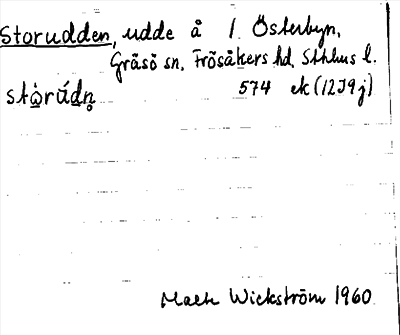 Storudden, udde å 1. Österbyn,
Gräsö sn, Frösåkers hd, Sthlms l.
stòrúdn̥ 574 ek (12J9j)
Wickström 1960